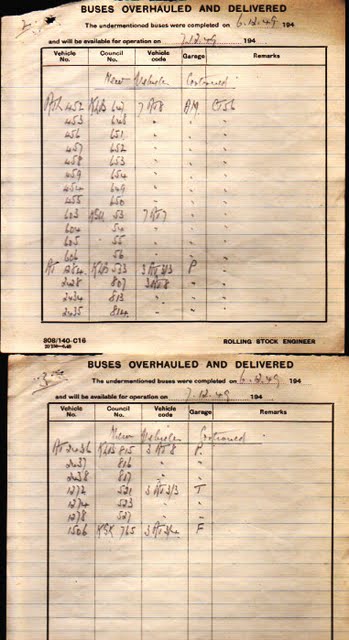 2
BUSES OVERHAULED AND DELIVERED
The undermentioned buses were completed on 6.12.49 194
and will be available for operation on 7.12.49 194
Vehicle No. Council No. Vehicle code Garage Remarks
New Vehicles Continued
RTL 452 KLB 647 7 RT 8 AM
453 648 " " "
456 651 " " "
457 652 " " "
458 653 " " "
459 654 " " "
454 649 " " "
455 650 " " "
603 KGU 53 7 RT 7 " "
604 54 " " "
605 55 " " "
606 56 " " "
RT 1284 KLB 533 3 RT 3/3 P
2428 807 3 RT 8 "
2434 813 " "
2435 814 " "
808/140-C16
ROLLING STOCK ENGINEER
3
BUSES OVERHAULED AND DELIVERED
The undermentioned buses were completed on 6.12.49 194
and will be available for operation on 7.12.49 194
Vehicle No. Council No. Vehicle code Garage Remarks
New Vehicles Continued
RT 2436 KLB 815 3 RT 8 P
2437 816 " "
2438 817 " "
1272 521 3 RT 3/3 T
1274 523 " "
1278 527 " "
1506 KGK 765 3 RT 3/4 F